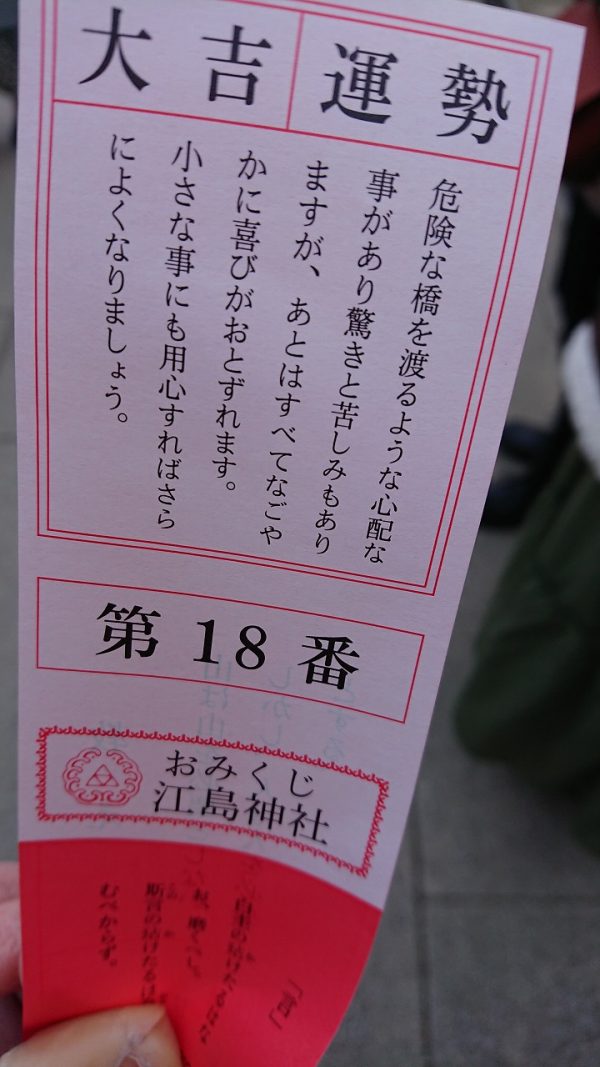 運勢
大吉
危険な橋を渡るような心配な
事があり驚きと苦しみもあり
ますが、あとはすべてなごや
かに喜びがおとずれます。
小さな事にも用心すればさら
によくなりましょう。
第18番
おみくじ
江島神社
「言」
白圭の玷けたるはな
お、磨くべし。
斯言の玷けたるは
むべからず。